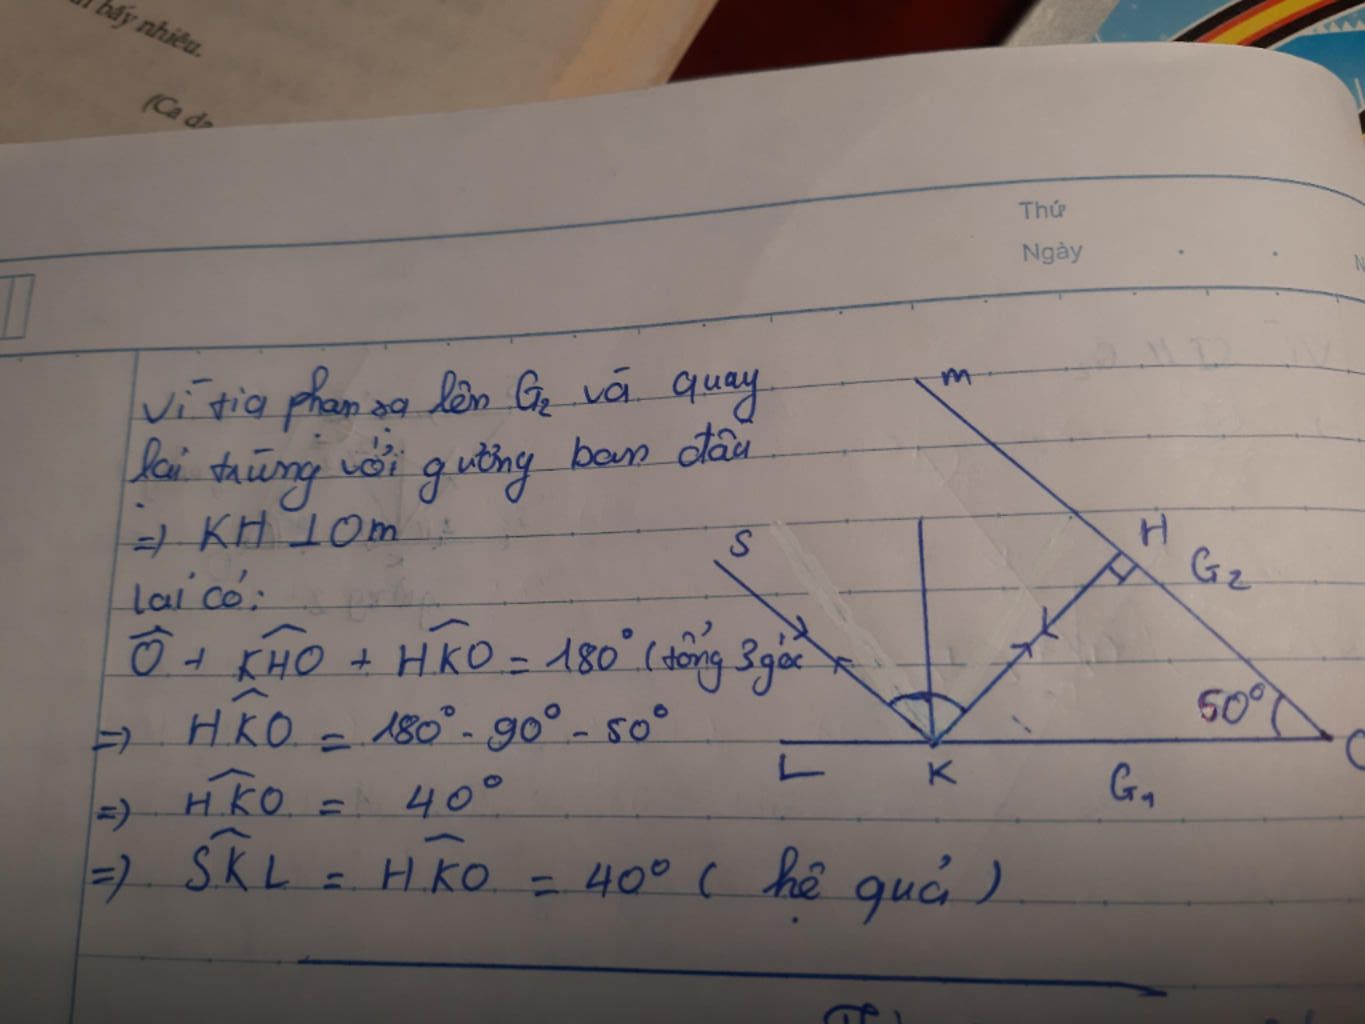 bấy nhiêu.
(Ca da
Thứ
Ngày
Vì tia phản xạ lên G₂ và quay
lại trùng với gương ban đầu
=) KH ⊥ Om
lại có:
Ô + KĤO + HK̂O = 180° (tổng 3 góc
=) HK̂O = 180° - 90° - 50°
=) HK̂O = 40°
=) SK̂L = HK̂O = 40° ( hệ quả )
m
S
H
G₂
50°
L
K
G₁